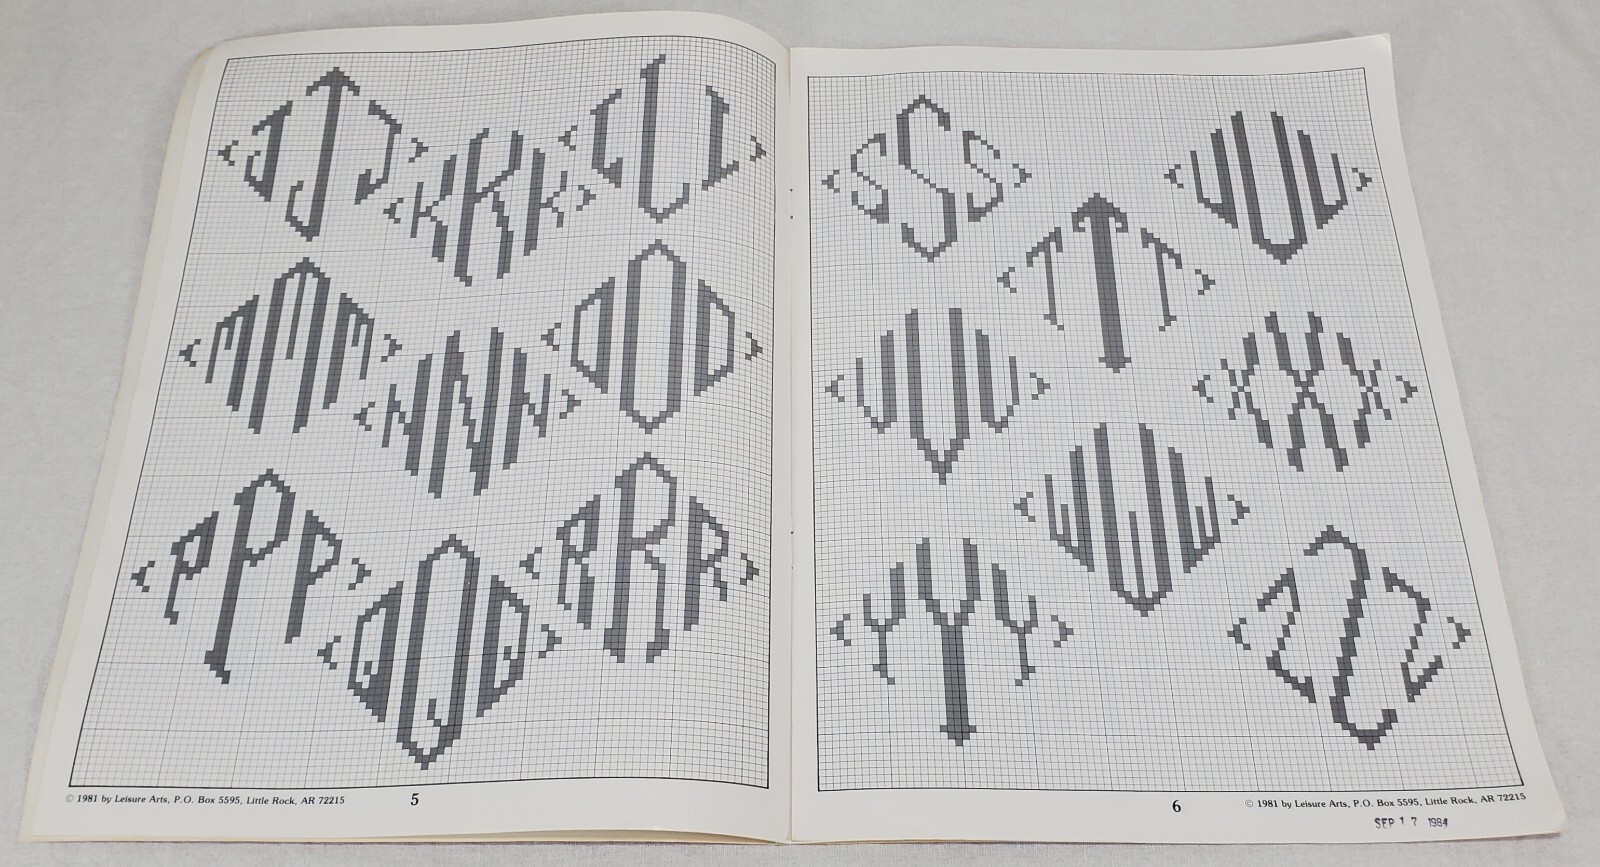 JJJ
KKK
LLL
MMM
NNN
OOO
PPP
QQQ
RRR
© 1981 by Leisure Arts, P.O. Box 5595, Little Rock, AR 72215
5
SSS
TTT
UUU
VVV
XXX
WWW
YYY
ZZZ
6
© 1981 by Leisure Arts, P.O. Box 5595, Little Rock, AR 72215
SEP 17 1984